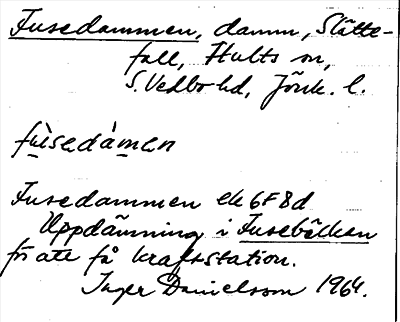 Fusedammen, damm, Slätte-
fall, Hults sn,
S. Vedbo hd, Jönk. l.
fùsedámen
Fusedammen ek 6F8d
Uppdämning i Fusebäcken
för att få kraftstation.
Inger Danielsson 1964.